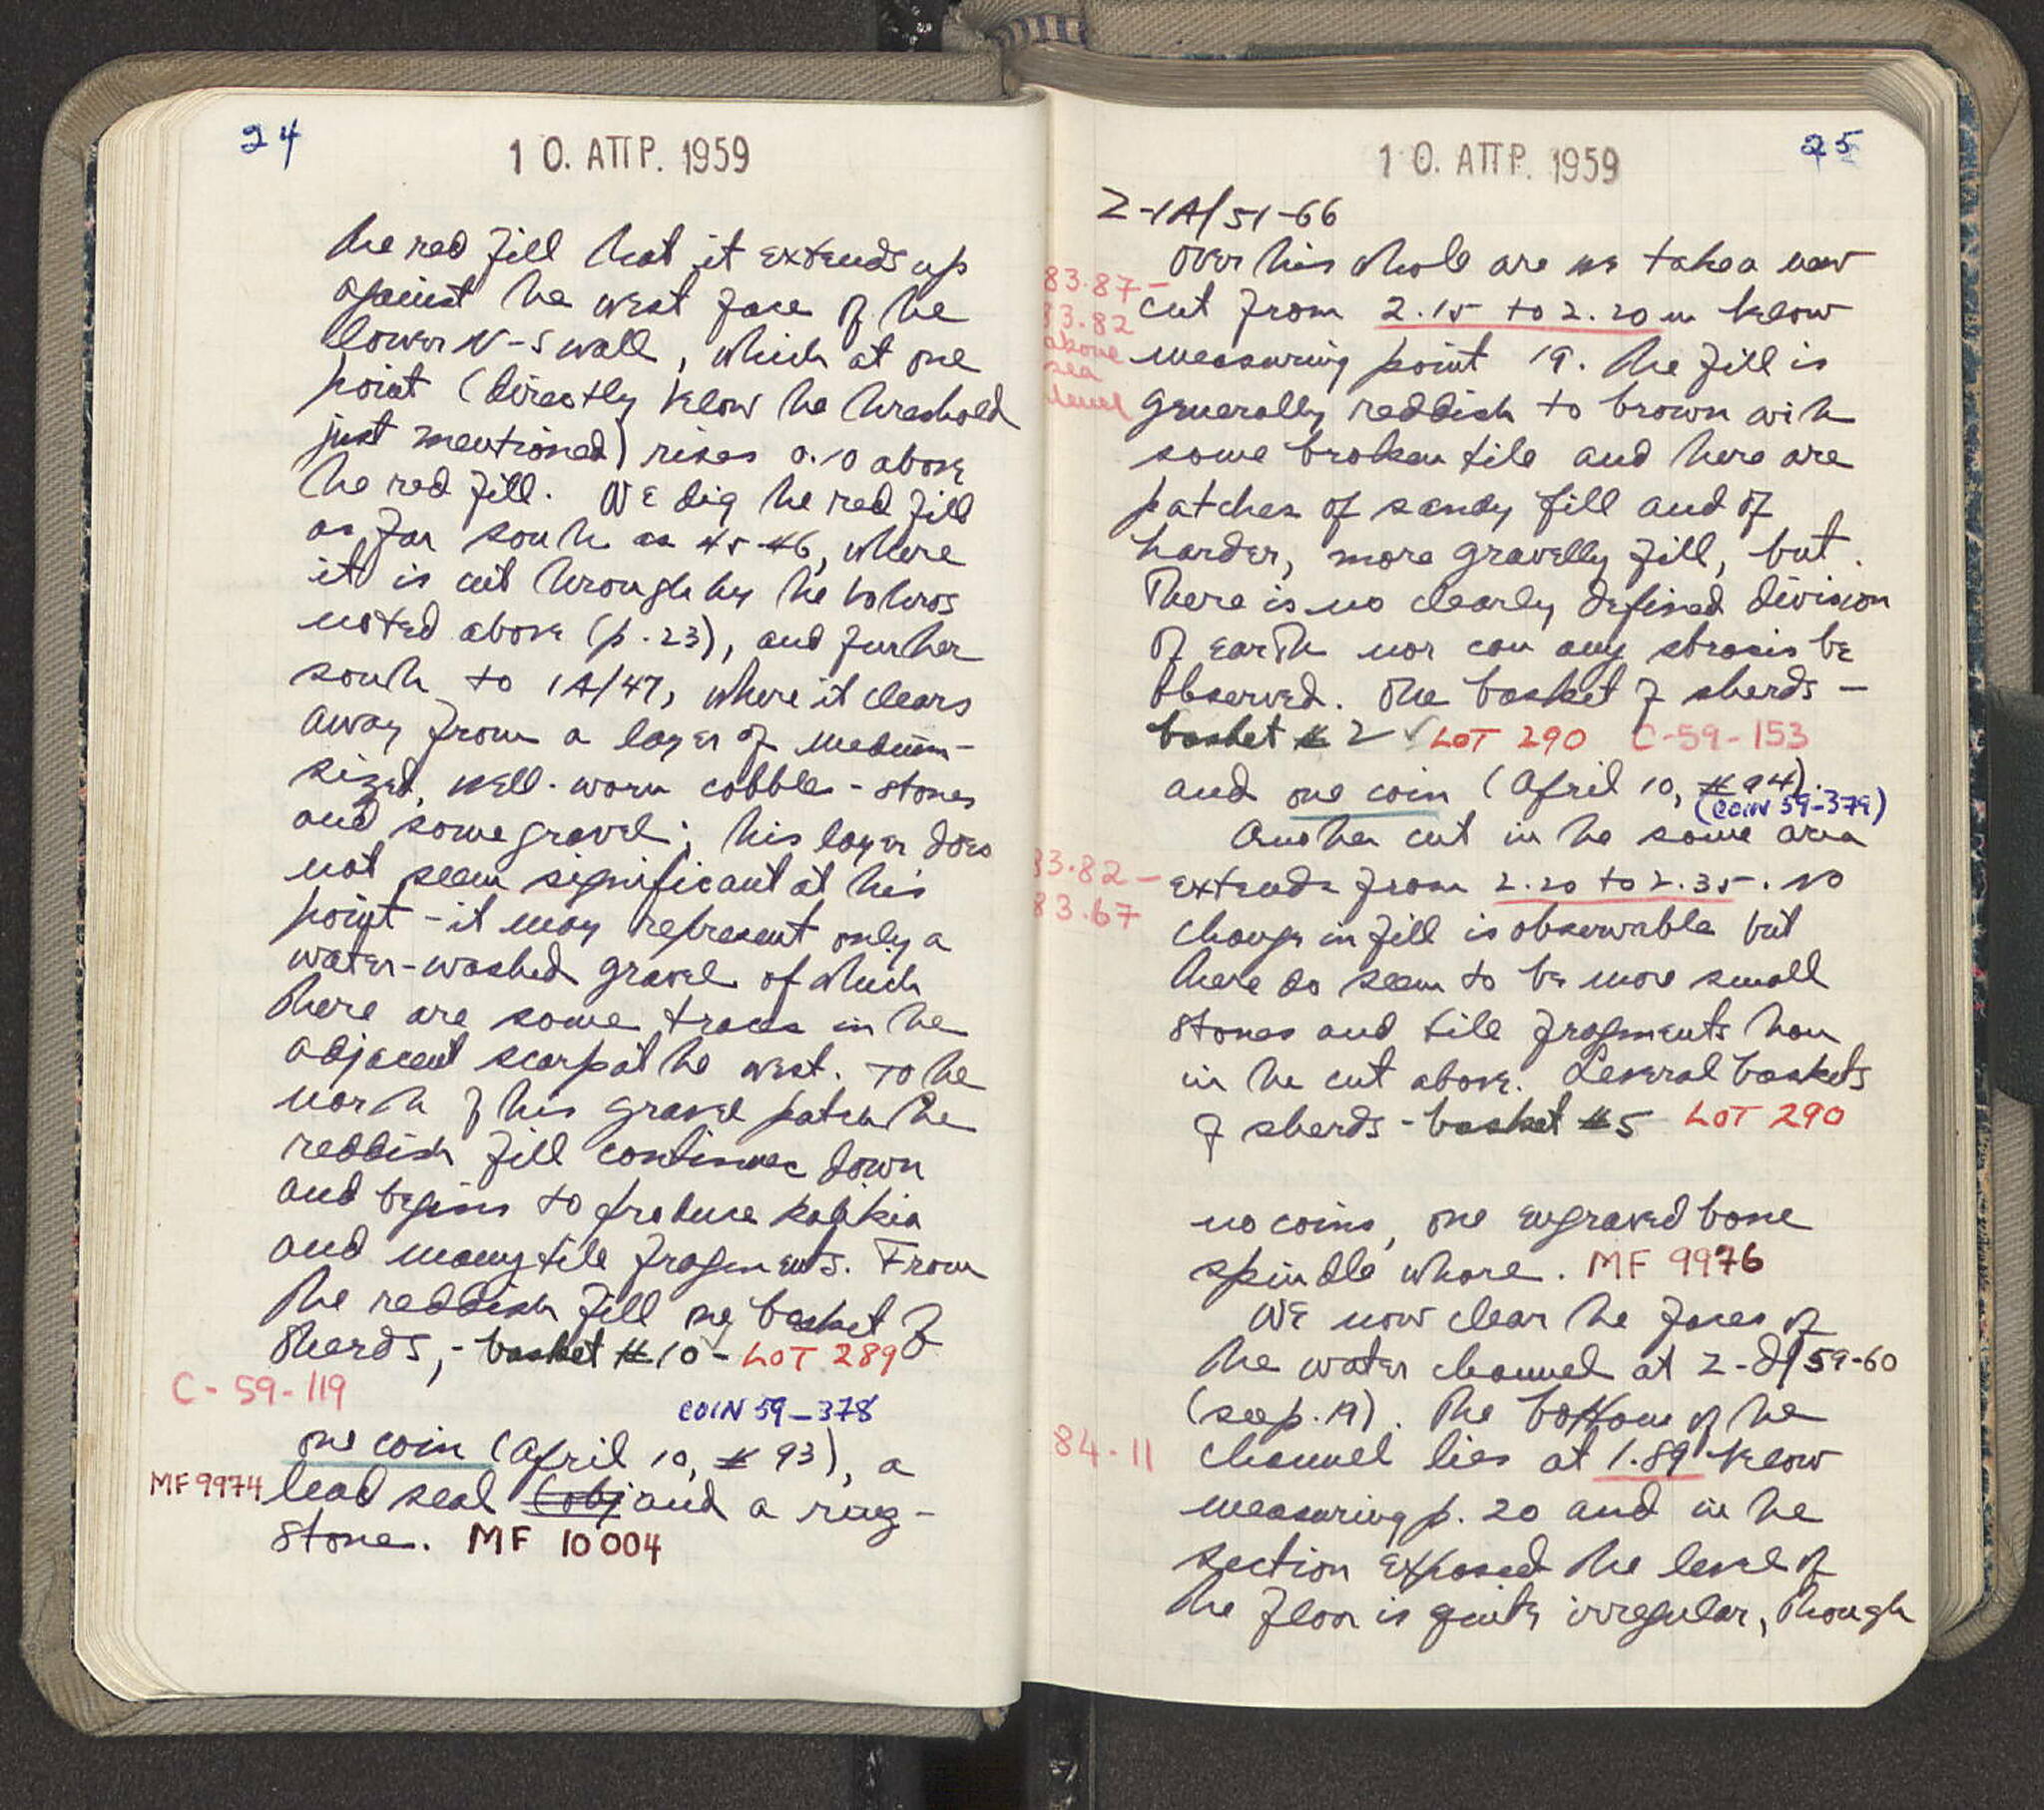 24
10. ΑΠΡ. 1959
the red fill that it extends up
against the west face of the
lower N-S wall, which at one
point (directly below the threshold
just mentioned) rises 0.10 above
the red fill. We dig the red fill
as far south as 45-46, where
it is cut through by the bothros
noted above (p. 23), and further
south to 1A/47, where it clears
away from a layer of medium-
sized, well-worn cobble-stones
and some gravel; this layer does
not seem significant at this
point - it may represent only a
water-washed gravel of which
there are some traces in the
adjacent scarp at the west. To the
north of this gravel patch the
reddish fill continues down
and begins to produce kalikia
and many tile fragments. From
the reddish fill one basket of
sherds, - basket #10 - LOT 289
C-59-119
COIN 59-378
one coin (April 10, #93), a
MF 9974 lead seal (obj and a ring-
stone. MF 10004
25
10. ΑΠΡ. 1959
Z-1A/51-66
Over this whole are we take a new
83.87 - cut from 2.15 to 2.20 m below
83.82 above sea level
measuring point 19. The fill is
generally reddish to brown with
some broken tile and there are
patches of sandy fill and of
harder, more gravelly fill, but
there is no clearly defined division
of earth nor can any strosis be
observed. One basket of sherds -
basket #2 ✓ LOT 290 C-59-153
and one coin (April 10, #94).
(COIN 59-379)
Another cut in the same area
83.82 - extends from 2.20 to 2.35. No
83.67 change in fill is observable but
there do seem to be more small
stones and tile fragments than
in the cut above. Several baskets
of sherds - basket #5 LOT 290
no coins, one engraved bone
spindle whore. MF 9976
We now clear the faces of
the water channel at Z-θ/59-60
(see p. 19). The bottom of the
84.11 channel lies at 1.89 below
measuring p. 20 and in the
section exposed the level of
the floor is quite irregular, though